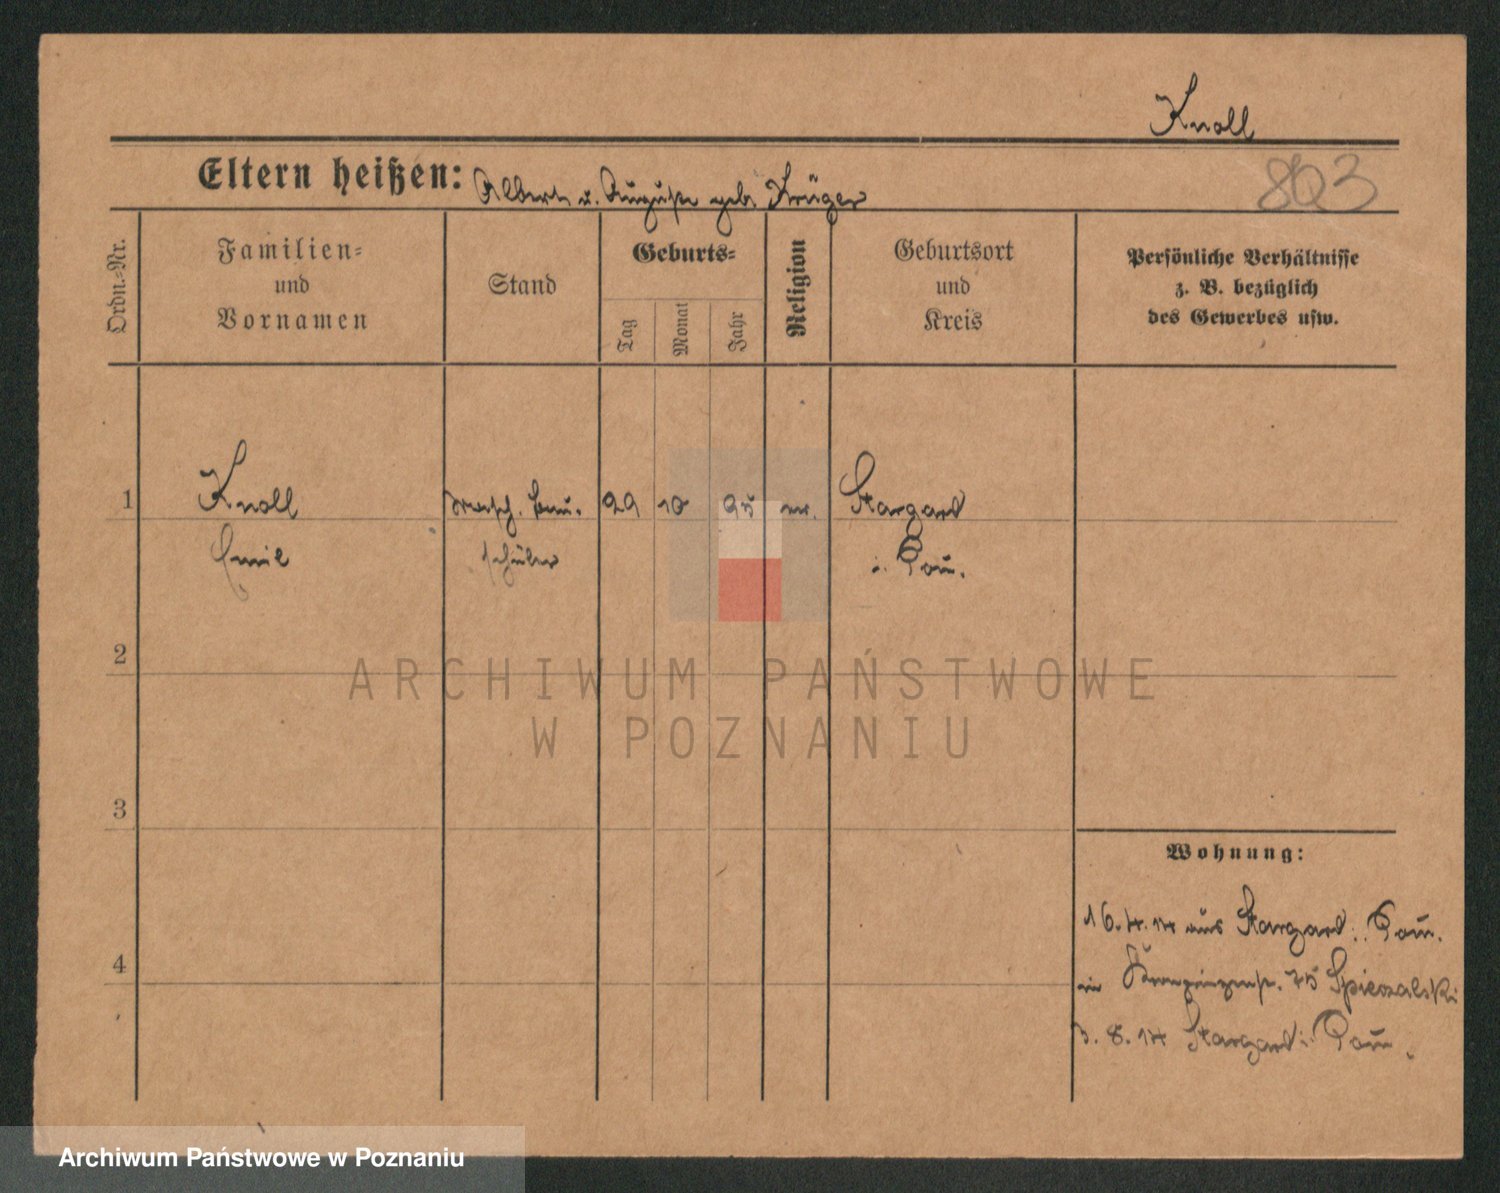 Knoll
Eltern heißen: Albert u. Auguste geb. Krüger
803
Ordn.=Nr.
Familien=
und
Vornamen
Stand
Geburts=
Tag
Monat
Jahr
Religion
Geburtsort
und
Kreis
Persönliche Verhältnisse
z. B. bezüglich
des Gewerbes usw.
1
Knoll
Emil
Masch. bau.
schüler
29
10
95
ev.
Stargard
i. Pom.
2
3
4
Wohnung:
16.4.14 aus Stargard i. Pom.
in Kronprinzenstr. 75
3. 8. 14 Stargard i. Pom.
ARCHIWUM PAŃSTWOWE
W POZNANIU
Archiwum Państwowe w Poznaniu